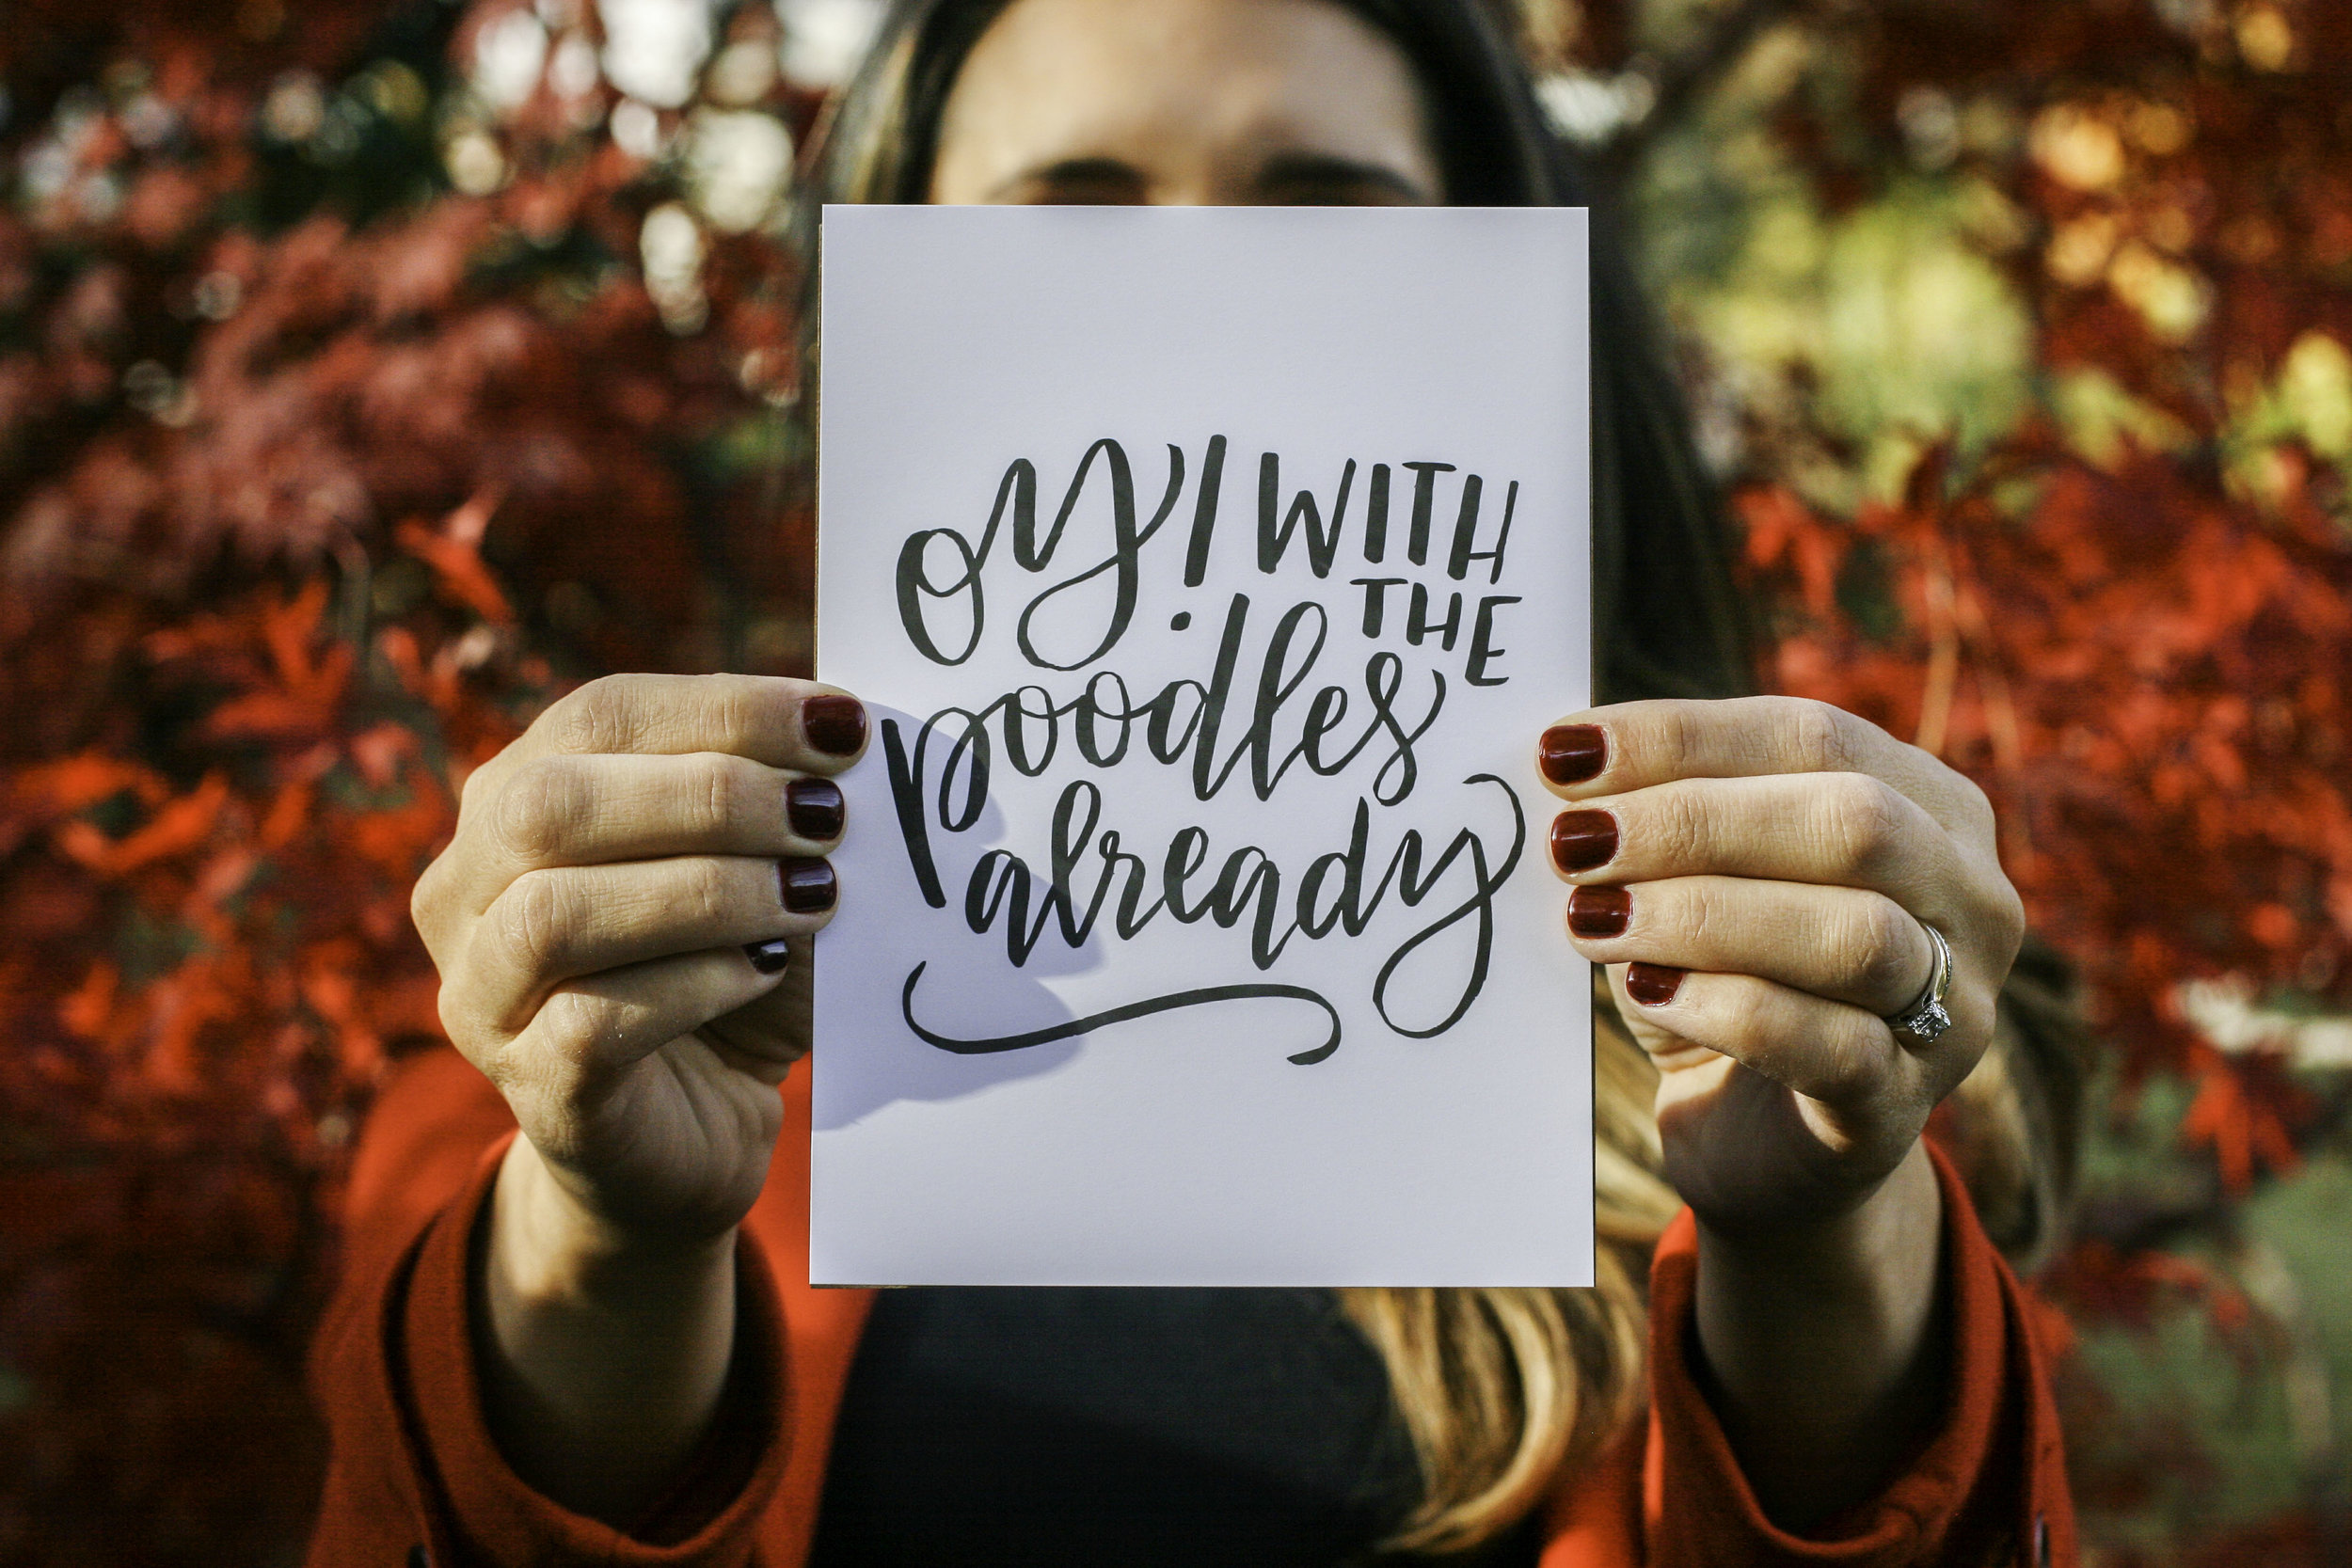 oy! WITH
THE
poodles
already